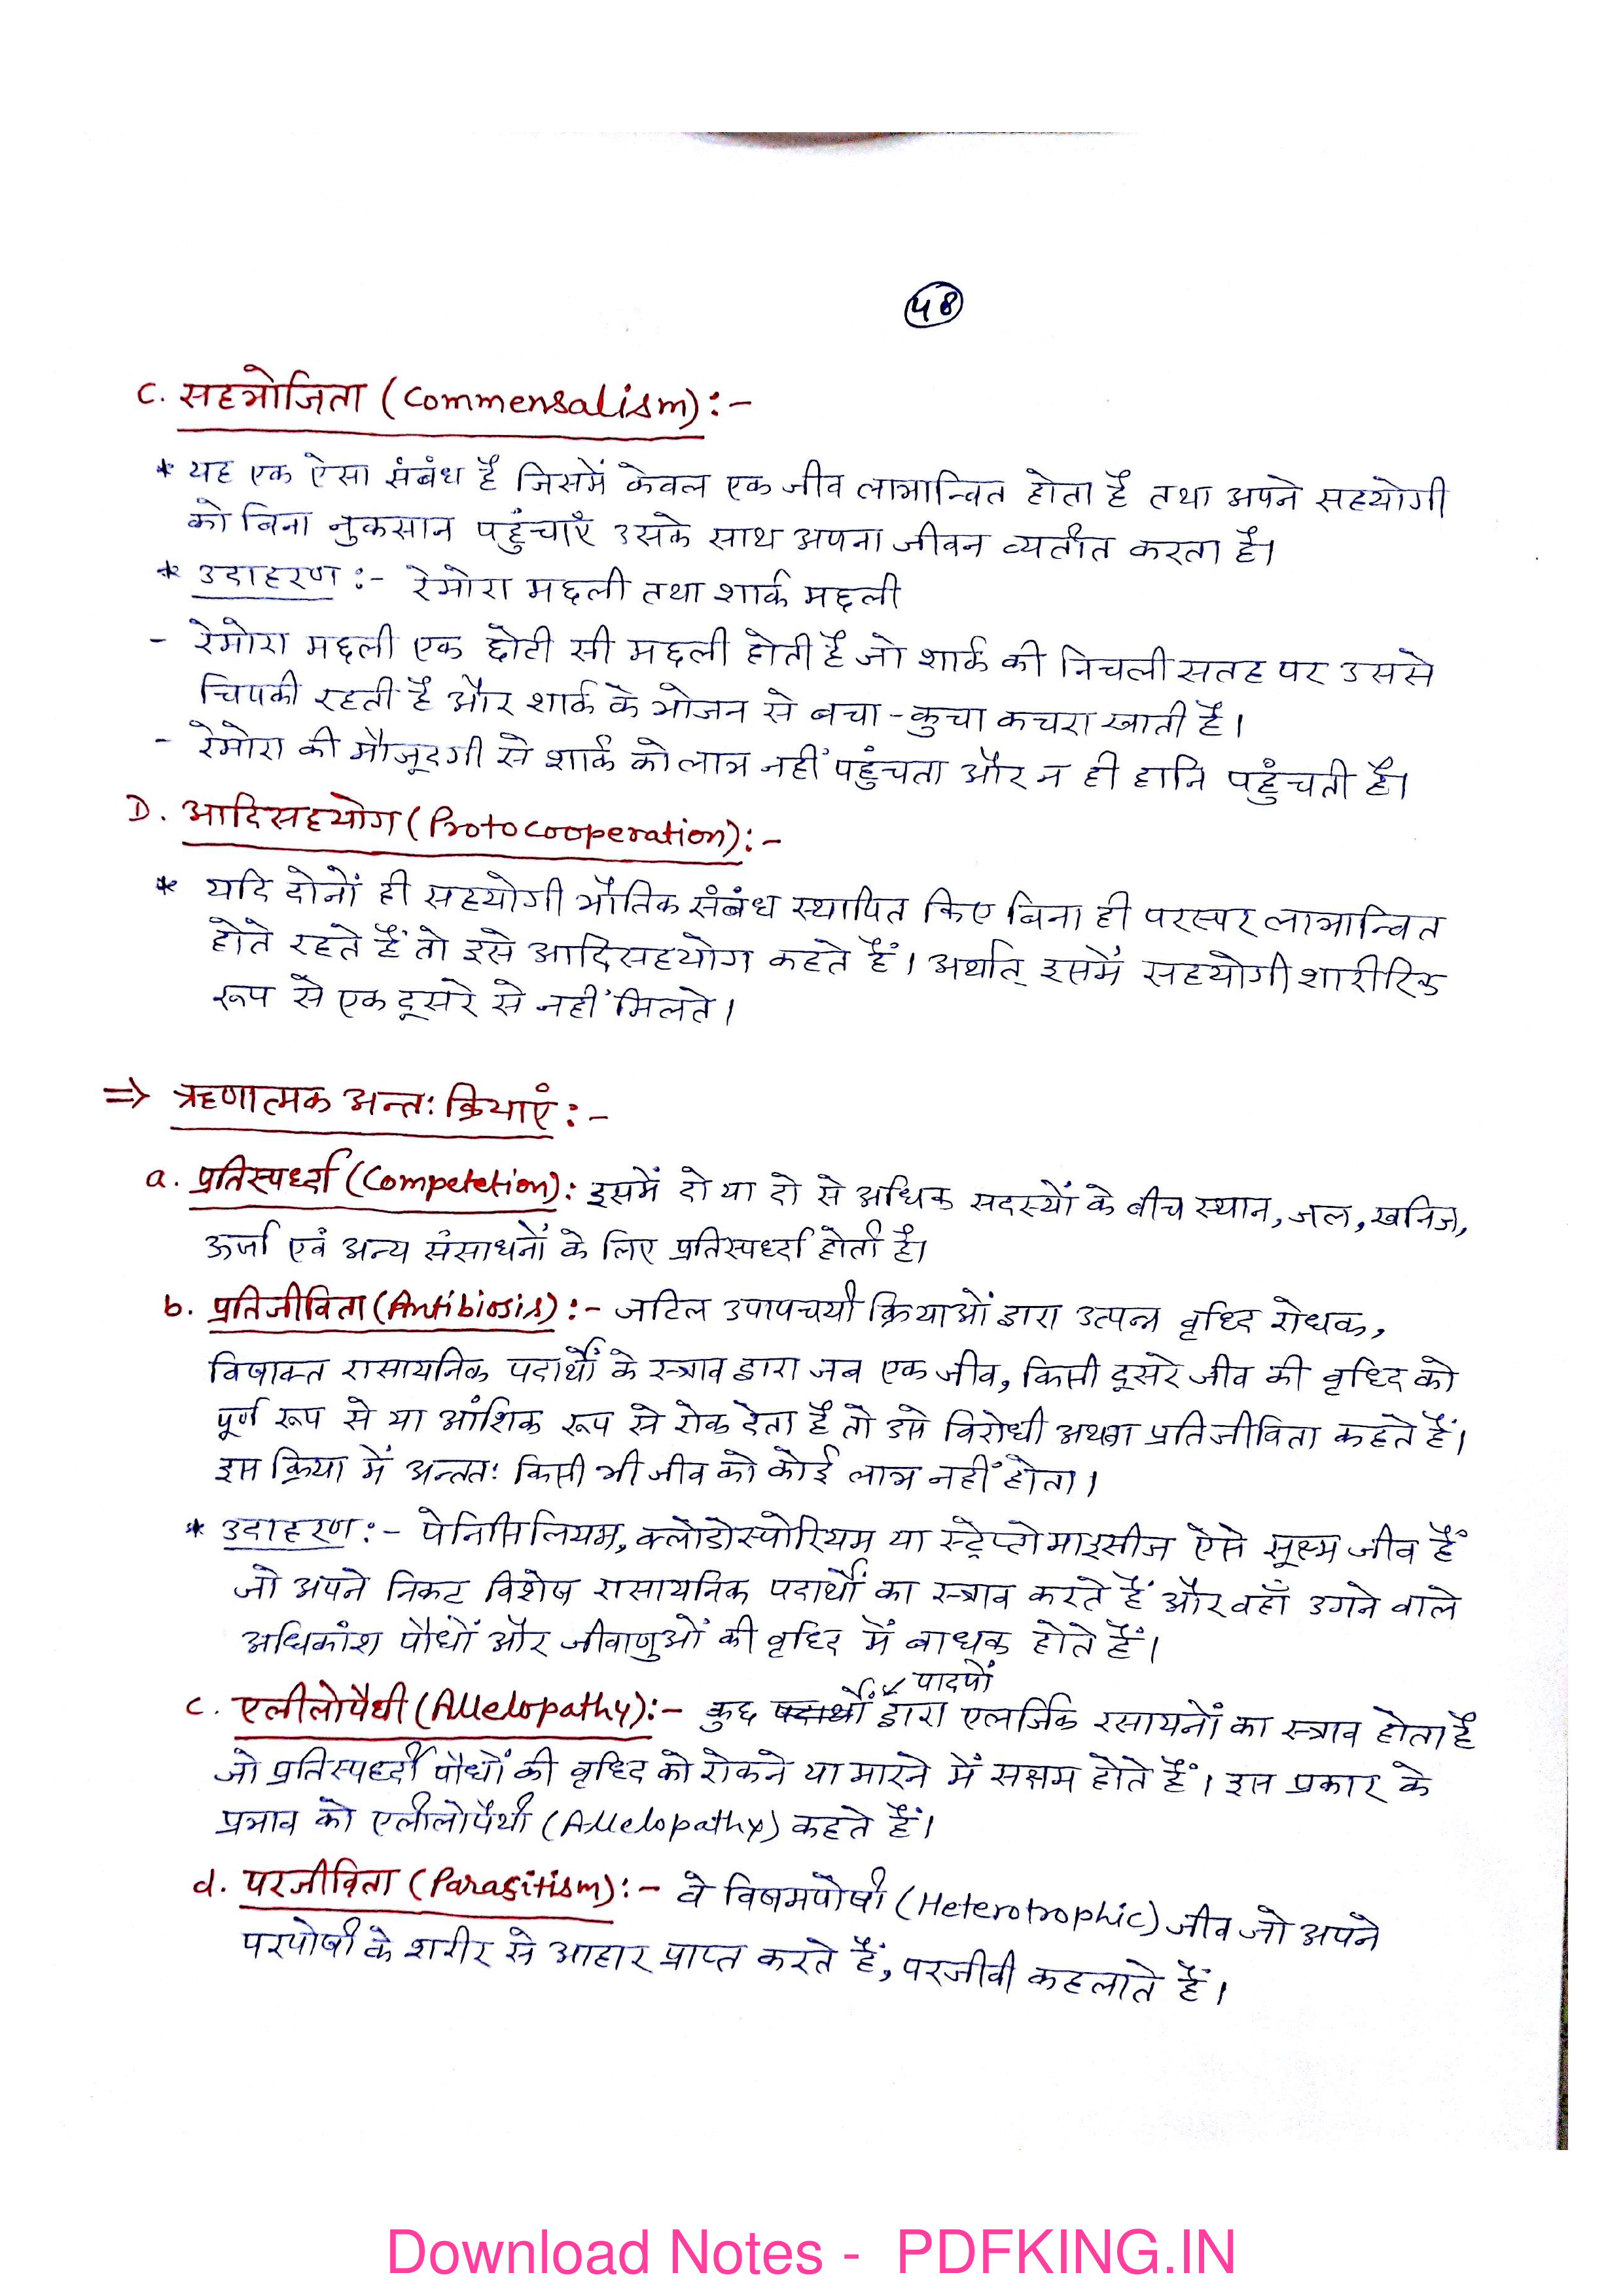 48
C. सहभोजिता (Commensalism) :-
* यह एक ऐसा संबंध है जिसमें केवल एक जीव लाभान्वित होता है तथा अपने सहयोगी
को बिना नुकसान पहुंचाएँ उसके साथ अपना जीवन व्यतीत करता है।
* उदाहरण :- रेमोरा मछली तथा शार्क मछली
- रेमोरा मछली एक छोटी सी मछली होती है जो शार्क की निचली सतह पर उससे
चिपकी रहती है और शार्क के भोजन से बचा-कुचा कचरा खाती है।
- रेमोरा की मौजूदगी से शार्क को लाभ नहीं पहुंचता और न ही हानि पहुंचती है।
D. आदिसहयोग (Protocooperation) :-
* यदि दोनों ही सहयोगी भौतिक संबंध स्थापित किए बिना ही परस्पर लाभान्वित
होते रहते हैं तो इसे आदिसहयोग कहते हैं। अर्थात् इसमें सहयोगी शारीरिक
रूप से एक दूसरे से नहीं मिलते।
=> ऋणात्मक अन्तः क्रियाएं :-
a. प्रतिस्पर्ध्दा (Competetion) : इसमें दो या दो से अधिक सदस्यों के बीच स्थान, जल, खनिज,
ऊर्जा एवं अन्य संसाधनों के लिए प्रतिस्पर्ध्दा होती है।
b. प्रतिजीविता (Antibiosis) :- जटिल उपापचयी क्रियाओं द्वारा उत्पन्न वृध्दि रोधक,
विषाक्त रासायनिक पदार्थों के स्त्राव द्वारा जब एक जीव, किसी दूसरे जीव की वृध्दि को
पूर्ण रूप से या आंशिक रूप से रोक देता है तो उसे विरोधी अथवा प्रतिजीविता कहते हैं।
इस क्रिया में अन्ततः किसी भी जीव को कोई लाभ नहीं होता।
* उदाहरण :- पेनिसिलियम, क्लोडोस्पोरियम या स्ट्रेप्टोमाइसीज ऐसे सूक्ष्म जीव हैं
जो अपने निकट विशेष रासायनिक पदार्थों का स्त्राव करते हैं और वहाँ उगने वाले
अधिकांश पौधों और जीवाणुओं की वृध्दि में बाधक होते हैं।
पादपों
c. एलीलोपैथी (Allelopathy) :- कुछ पदार्थों द्वारा एलर्जिक रसायनों का स्त्राव होता है
जो प्रतिस्पर्ध्दी पौधों की वृध्दि को रोकने या मारने में सक्षम होते हैं। इस प्रकार के
प्रभाव को एलीलोपैथी (Allelopathy) कहते हैं।
d. परजीविता (Parasitism) :- वे विषमपोषी (Heterotrophic) जीव जो अपने
परपोषी के शरीर से आहार प्राप्त करते हैं, परजीवी कहलाते हैं।
Download Notes - PDFKING.IN